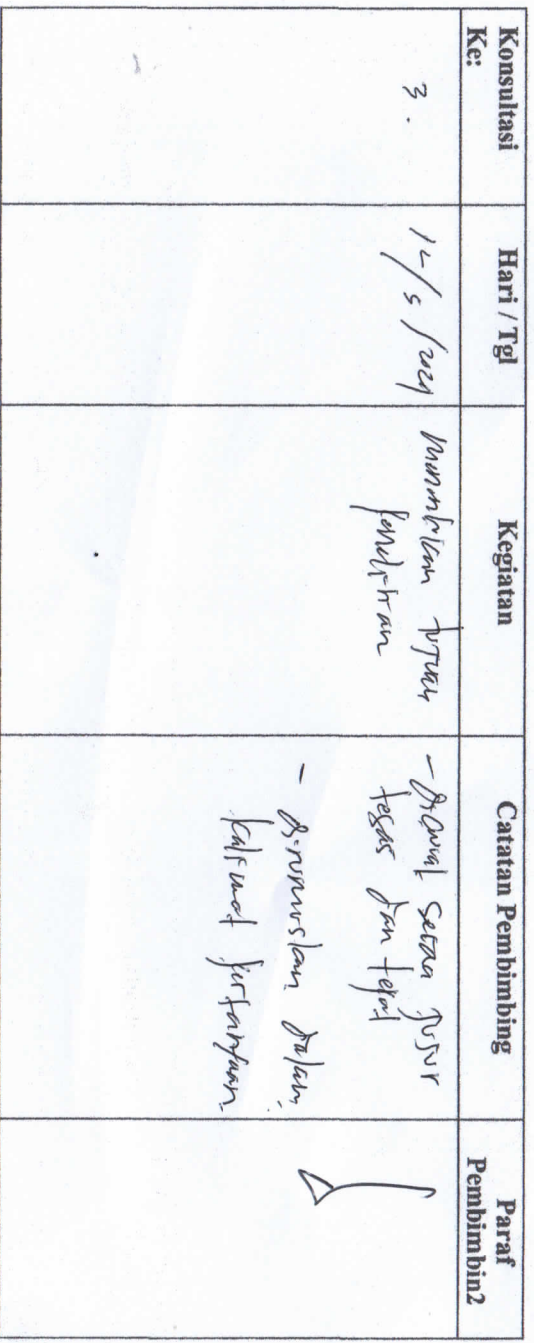 Konsultasi
Ke:
Hari / Tgl
Kegiatan
Catatan Pembimbing
Paraf
Pembimbin2
3.
12/5/2024
Tujuan
penelitian
- dimuat secara jujur
tegas dan tepat
- dirumuskan dalam
kalimat pertanyaan